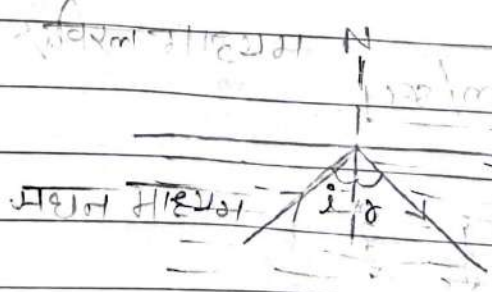 विरल माध्यम N
सघन माध्यम i r